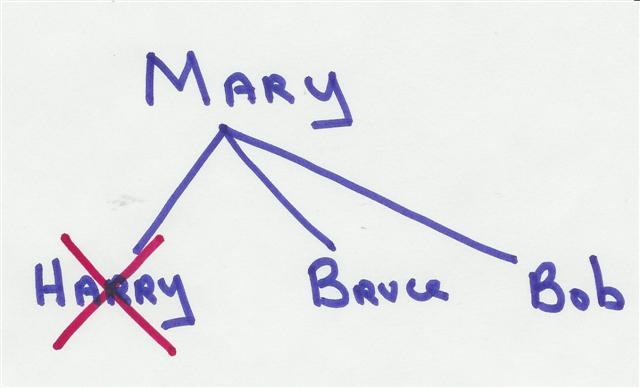 Mary
Harry Bruce Bob